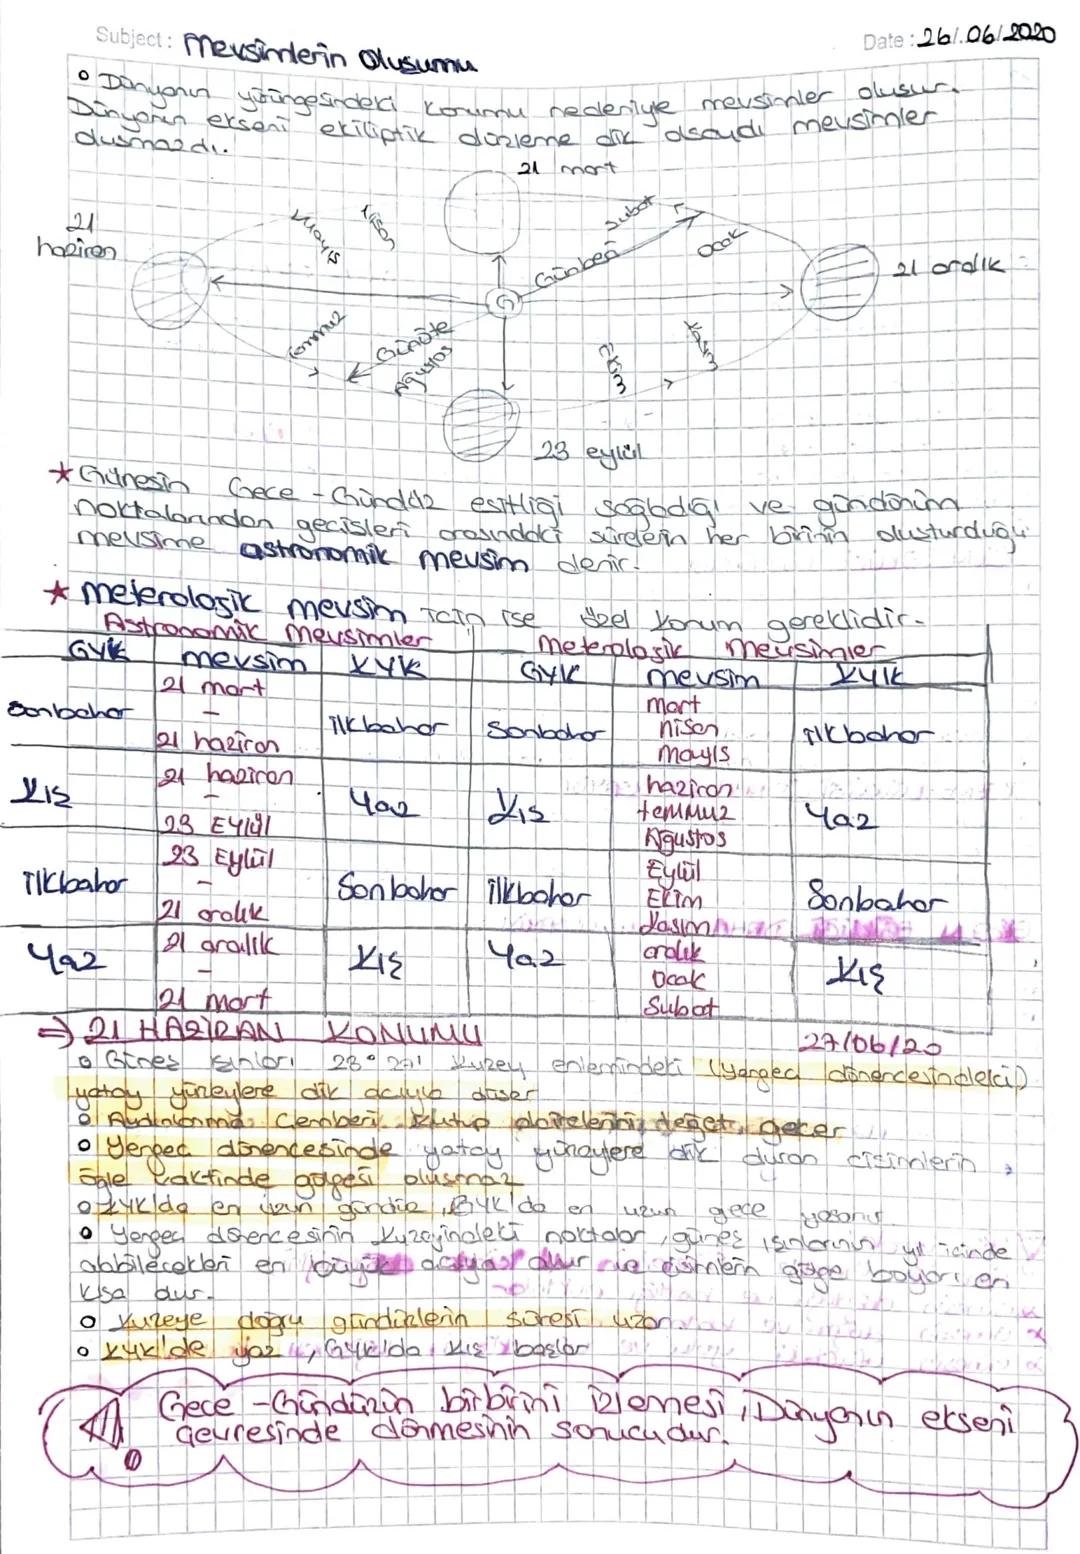 Subject: Mevsimlerin Oluşumu
Date: 26/.06/2020
o Dünyanın yörüngesindeki konumu nedeniyle mevsimler oluşur.
Dünyanın ekseni ekiliptik düzleme dik olsaydı mevsimler
olusmazdı.
21 mart
21
haziran
Mayıs
Nisan
Şubat
Ocak
Günberi
21 aralık
G
Temmuz
Günöte
Ağustos
Ekim
Kasım
23 eylül
★ Güneşin Gece - Gündüz eşitliği sağladığı ve gündönüm
noktalarından geçişleri arasındaki sürelerin her birinin oluşturduğu
mevsime astronomik mevsim denir.
★ meterolojik mevsim için ise özel konum gereklidir.
Astronomik Mevsimler Meterolojik Mevsimler
GYK mevsim KYK GYK mevsim KYK
Sonbahar 21 mart - 21 haziran ilkbahar Sonbahar mart nisan mayıs ilkbahar
Kış 21 haziran - 23 Eylül Yaz Kış haziran temmuz Ağustos Yaz
ilkbahar 23 Eylül - 21 aralık Sonbahar ilkbahar Eylül Ekim Kasım Sonbahar
Yaz 21 aralık - 21 mart Kış Yaz aralık Ocak Subat Kış
⇒ 21 HAZİRAN KONUMU 27/06/20
o Güneş ışınları 23° 27' kuzey enlemindeki (yengeç dönencesindeki)
yatay yüzeylere dik açıyla düşer
o Aydınlanma Çemberi Kutup dairelerini değet geçer
o Yengeç dönencesinde yatay yüzeylere dik duran cisimlerin
öğle vaktinde gölgesi oluşmaz
o KYK'da en uzun gündüz, GYK'da en uzun gece yaşanır
o Yengeç dönencesinin kuzeyindeki noktalar, güneş ışınlarının yıl içinde
alabilecekleri en büyük açıyla alır ve cisimlerin gölge boyları en
kısa olur.
o Kuzeye doğru gündüzlerin süresi uzar.
o KYK'de yaz, GYK'da kış başlar
Gece - Gündüzün birbirini izlemesi, Dünyanın ekseni
çevresinde dönmesinin sonucudur.